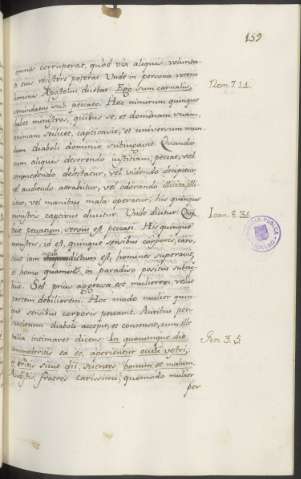 159
omnia corruperat, quod vix aliquis volunta-
ti suis resistere poterat. Unde in persona veteri
hominis Apostolus dicebat. Ego sum carnalis,
venundatus sub peccato. Hoc nimirum quinque
talis monstris, quibus se, et dominam suam,
animam scilicet, captivavit, et universum mun-
dum diaboli dominio subiugavit. Quando
cum aliquis deserendo iustitiam, peccat, vel
concedendo delectatur, vel videndo decipitur
vel audiendo aerabitur, vel odorando
cit, vel manibus mala operatur, his quinque
monstris captivus ducitur. Unde dicitur. Qui
facit peccatum servus est peccati. His quinque
monstris, id est, quinque sensibus corporis, caro,
iam dictum est, homines superavit,
et homo in paradiso positus subiu-
gavit. Sed prius aggressa est mulierem velut
partem debiliorem. Hoc modo mulier quin-
que sensibus corporis peccavit. Auribus per-
suasionem diaboli accepit, et consensit, cum illi
talia intimaret dicens. In quacunque die
comederitis ex eo, aperientur oculi vestri,
et eritis sicut dii, scientes bonum et malum.
Audistis fratres carissimi, quomodo mulier
per
Rom. 7. 14.
Ioan. 8. 34
Gen. 3. 5